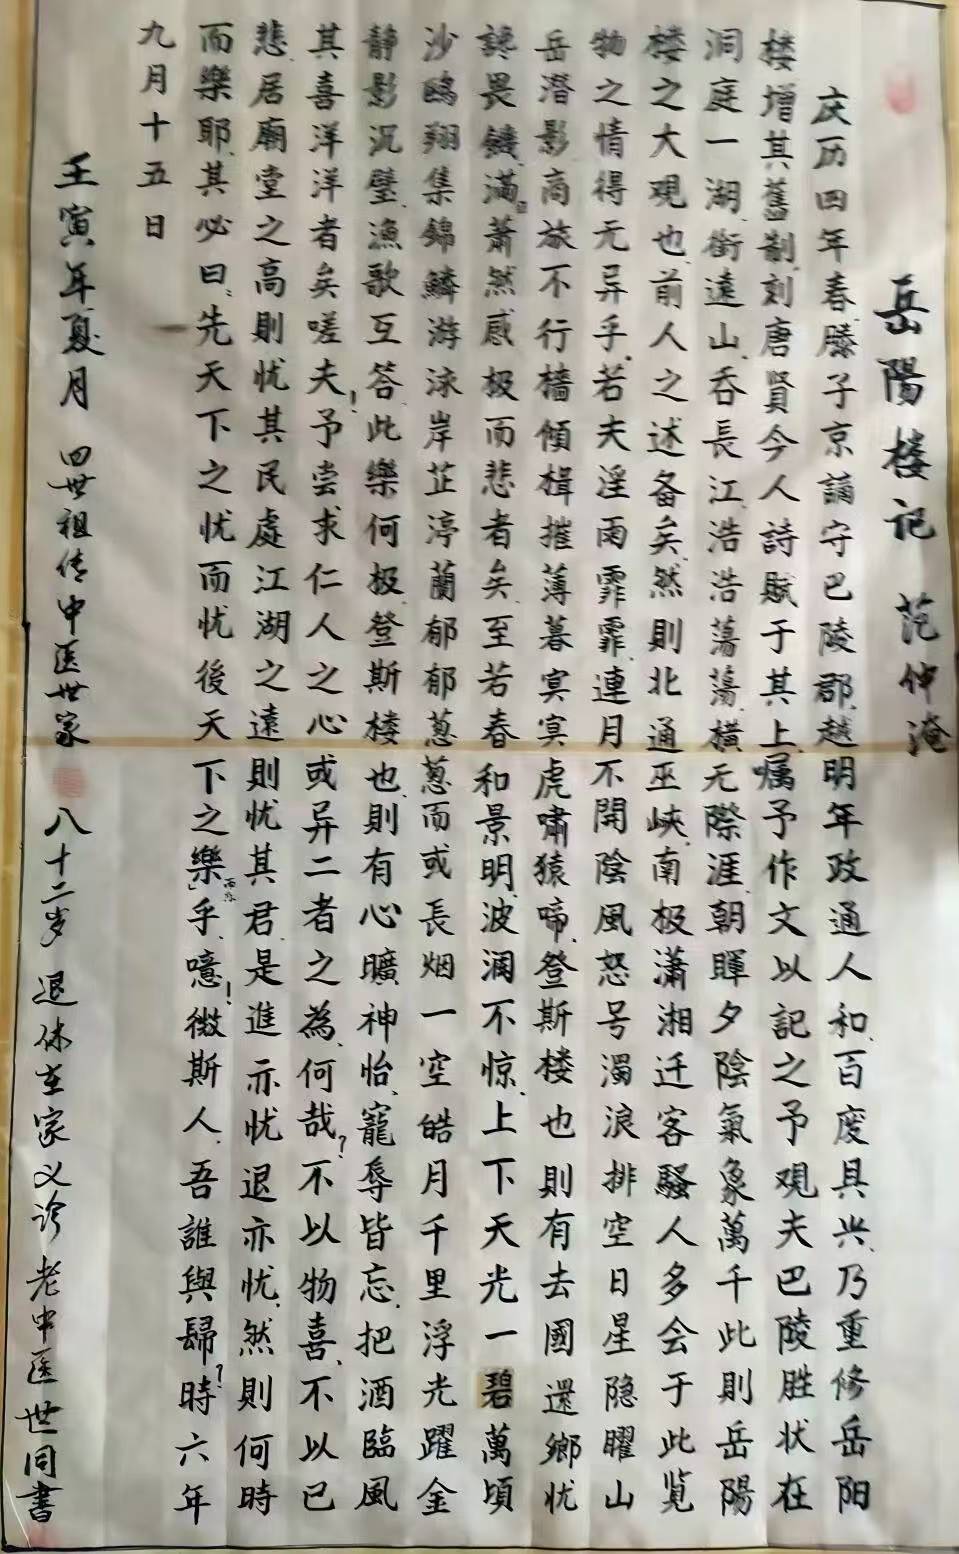 岳陽楼记 范仲淹
庆历四年春滕子京謫守巴陵郡越明年政通人和百废具兴乃重修岳阳
楼增其舊制刻唐賢今人詩賦于其上嘱予作文以記之予观夫巴陵胜状在
洞庭一湖銜遠山吞長江浩浩蕩蕩横无際涯朝暉夕陰氣象萬千此則岳陽
楼之大观也前人之述备矣然則北通巫峡南极瀟湘迁客騷人多会于此览
物之情得无异乎若夫淫雨霏霏連月不開陰風怒号濁浪排空日星隐曜山
岳潜影商旅不行檣傾楫摧薄暮冥冥虎嘯猿啼登斯楼也則有去國還鄉忧
讒畏饑滿目萧然感极而悲者矣至若春和景明波澜不惊上下天光一碧萬頃
沙鷗翔集錦鱗游泳岸芷渟蘭郁郁葱葱而或長烟一空皓月千里浮光躍金
静影沉璧漁歌互答此樂何极登斯楼也則有心曠神怡寵辱皆忘把酒臨風
其喜洋洋者矣嗟夫!予尝求仁人之心或异二者之為何哉?不以物喜不以已
悲居廟堂之高則忧其民處江湖之遠則忧其君是進亦忧退亦忧然則何時
而樂耶其必曰:先天下之忧而忧後天下之樂」而樂乎噫!微斯人吾誰與歸?時六年
九月十五日
壬寅年夏月 四世祖传中医世家 八十二岁退休在家义诊老中医世同書